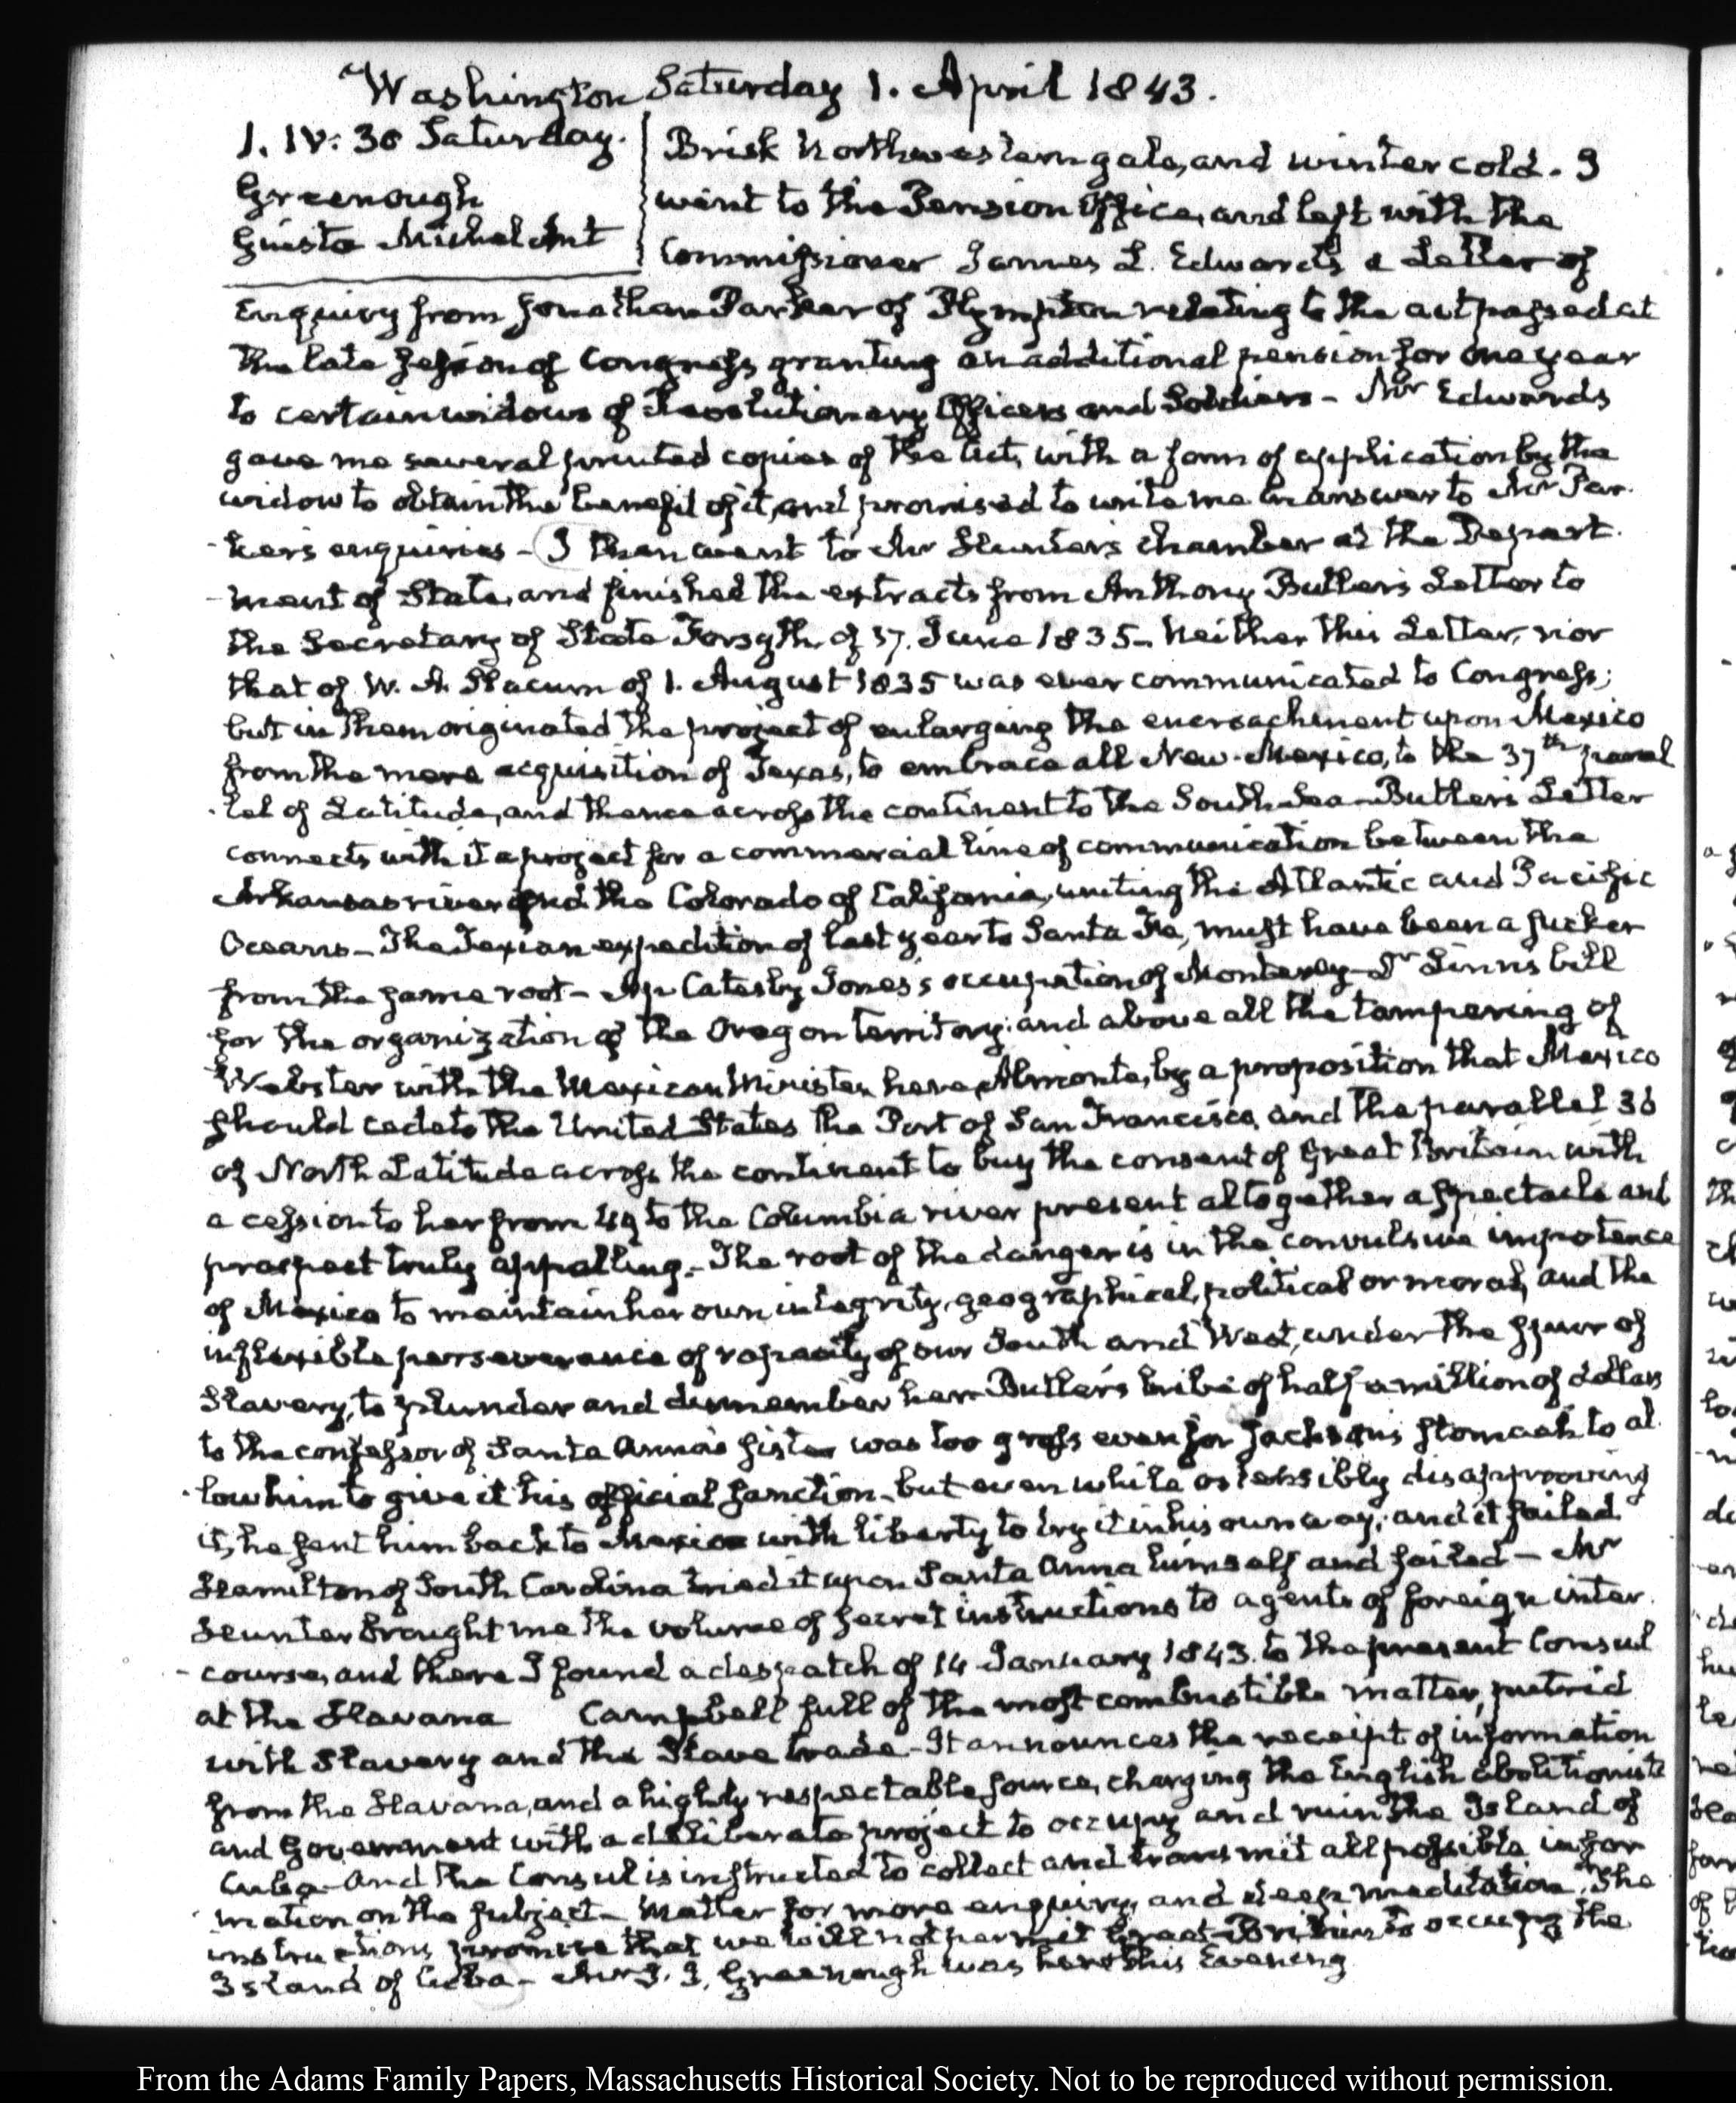 Washington Saturday 1. April 1843.
1. IV: 30 Saturday.
Greenough
Giusta Michel Ant
Brisk Northwestern gale, and winter cold. I
went to the Pension Office, and left with the
Commissioner James L. Edwards a Letter of
Enquiry from Jonathan Parker of Plympton relating to the act passed at
the late session of Congress granting an additional pension for one year
to certain widows of Revolutionary Officers and Soldiers - Mr Edwards
gave me several printed copies of the Act, with a form of application by the
widow to obtain the benefit of it, and promised to write me in answer to Mr Par-
-kers enquiries - I then went to Mr Hunter's chamber at the Depart-
-ment of State, and finished the extracts from Anthony Butler's Letter to
the Secretary of State Forsyth of 17. June 1835 - Neither this Letter, nor
that of W. A. Slacum of 1. August 1835 was ever communicated to Congress;
but in them originated the project of enlarging the encroachment upon Mexico
from the mere acquisition of Texas, to embrace all New-Mexico, to the 37th paral
-lel of Latitude, and thence across the continent to the South Sea - Butler's Letter
connects with it a project for a commercial line of communication between the
Arkansas river and the Colorado of California, uniting the Atlantic and Pacific
Oceans - The Texian expedition of last year to Santa Fe, must have been a sucker
from the same root - Ap Catesby Jones's occupation of Monterey - Dr Linn's bill
for the organization of the Oregon territory: and above all the tampering of
Webster with the Mexican Minister here, Almonte, by a proposition that Mexico
should cede to the United States the Port of San Francisco, and the parallel 36
of North Latitude across the continent to buy the consent of Great Britain with
a cession to her from 49 to the Columbia river present altogether a spectacle and
prospect truly appalling. - The root of the danger is in the convulsive impotence
of Mexico to maintain her own integrity, geographical, political or moral, and the
inflexible perseverance of rapacity of our South and West, under the spur of
Slavery, to plunder and dismember her - Butler's bribe of half a million of dollars
to the confessor of Santa Anna's sister was too gross even for Jackson's stomach to al
-low him to give it his official sanction - but even while ostensibly disapproving
it, he sent him back to Mexico with liberty to try it in his own way; and it failed
Hamilton of South Carolina tried it upon Santa Anna himself and failed - Mr
Hunter brought me the volume of secret instructions to agents of foreign inter
-course, and there I found a despatch of 14 January 1843. to the present Consul
at the Havana Campbell full of the most combustible matter, putrid
with Slavery and the Slave trade - It announces the receipt of information
from the Havana, and a highly respectable source, charging the English abolitionists
and Government with a deliberate project to occupy and ruin the Island of
Cuba - And the Consul is instructed to collect and transmit all possible infor
-mation on the subject - Matter for more enquiry, and deep meditation. The
instructions promise that we will not permit Great-Britain to occupy the
Island of Cuba - Mr Greenough was here this Evening
From the Adams Family Papers, Massachusetts Historical Society. Not to be reproduced without permission.